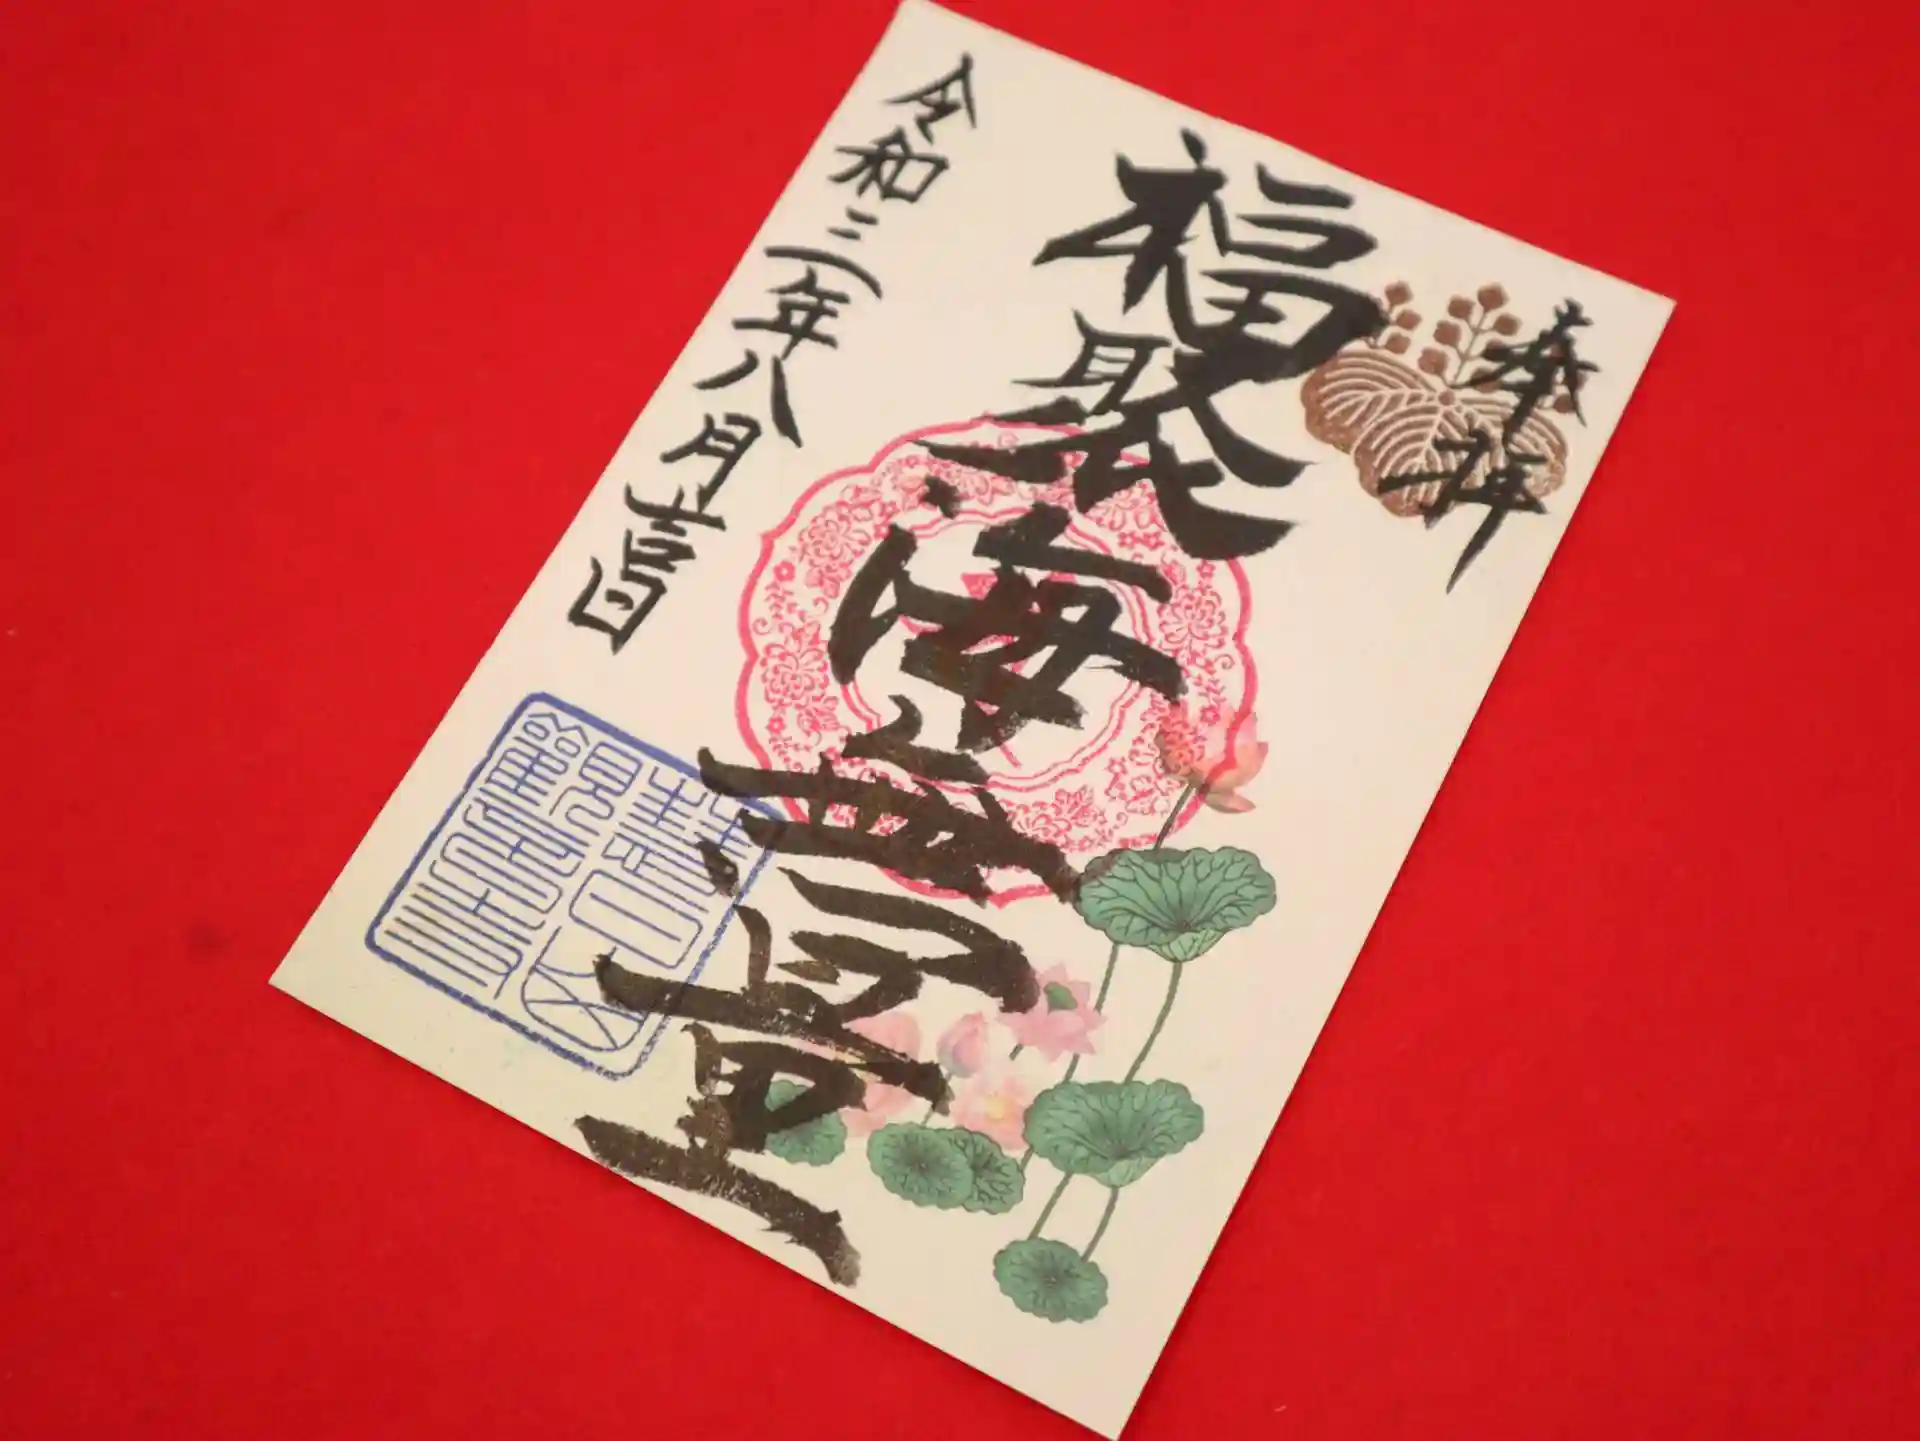 奉拝
福聚海無量
令和三年八月